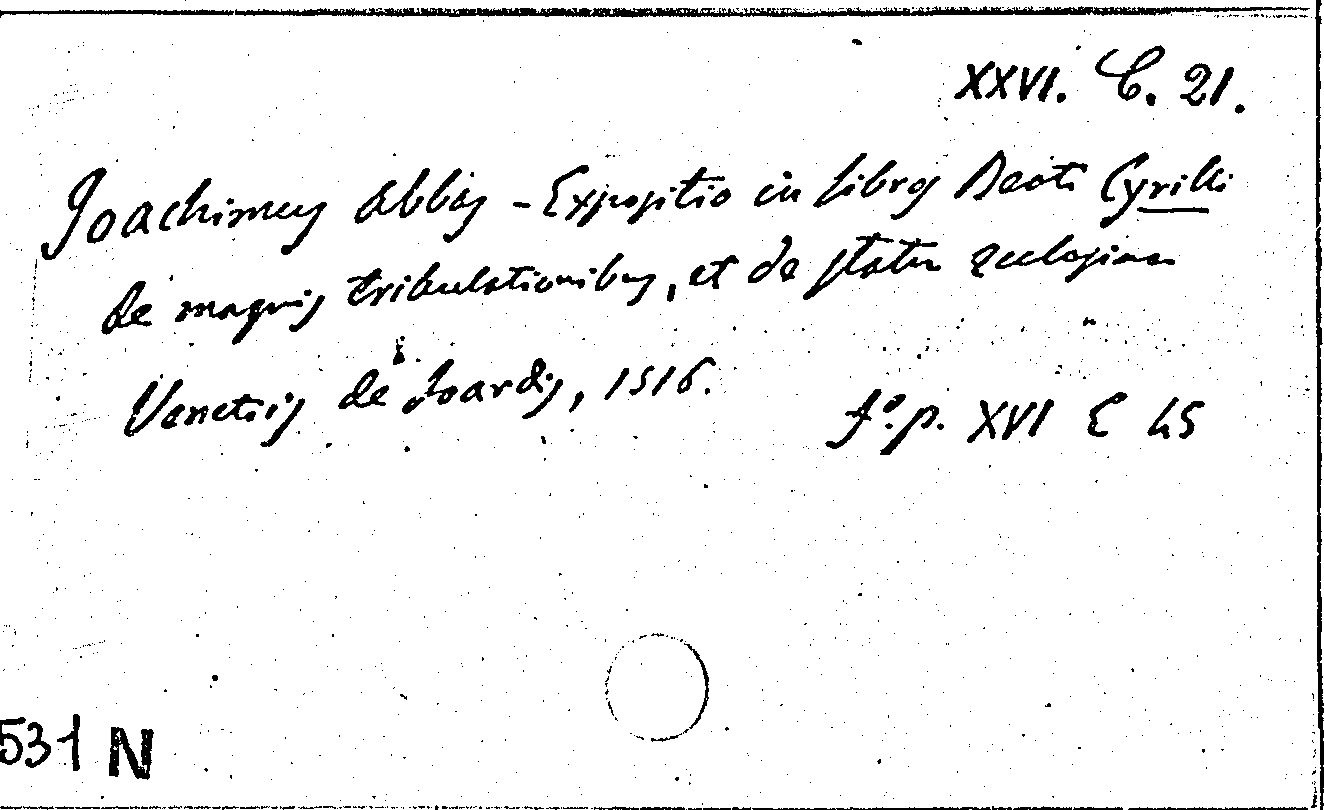 XXVI. C. 21.
Joachimus Abbas - Expositio in libros Beati Cyrilli
de magnis tribulationibus, et de statu ecclesiae
Venetiis de Soardis, 1516.
f.o p. XVI E 45
531 N